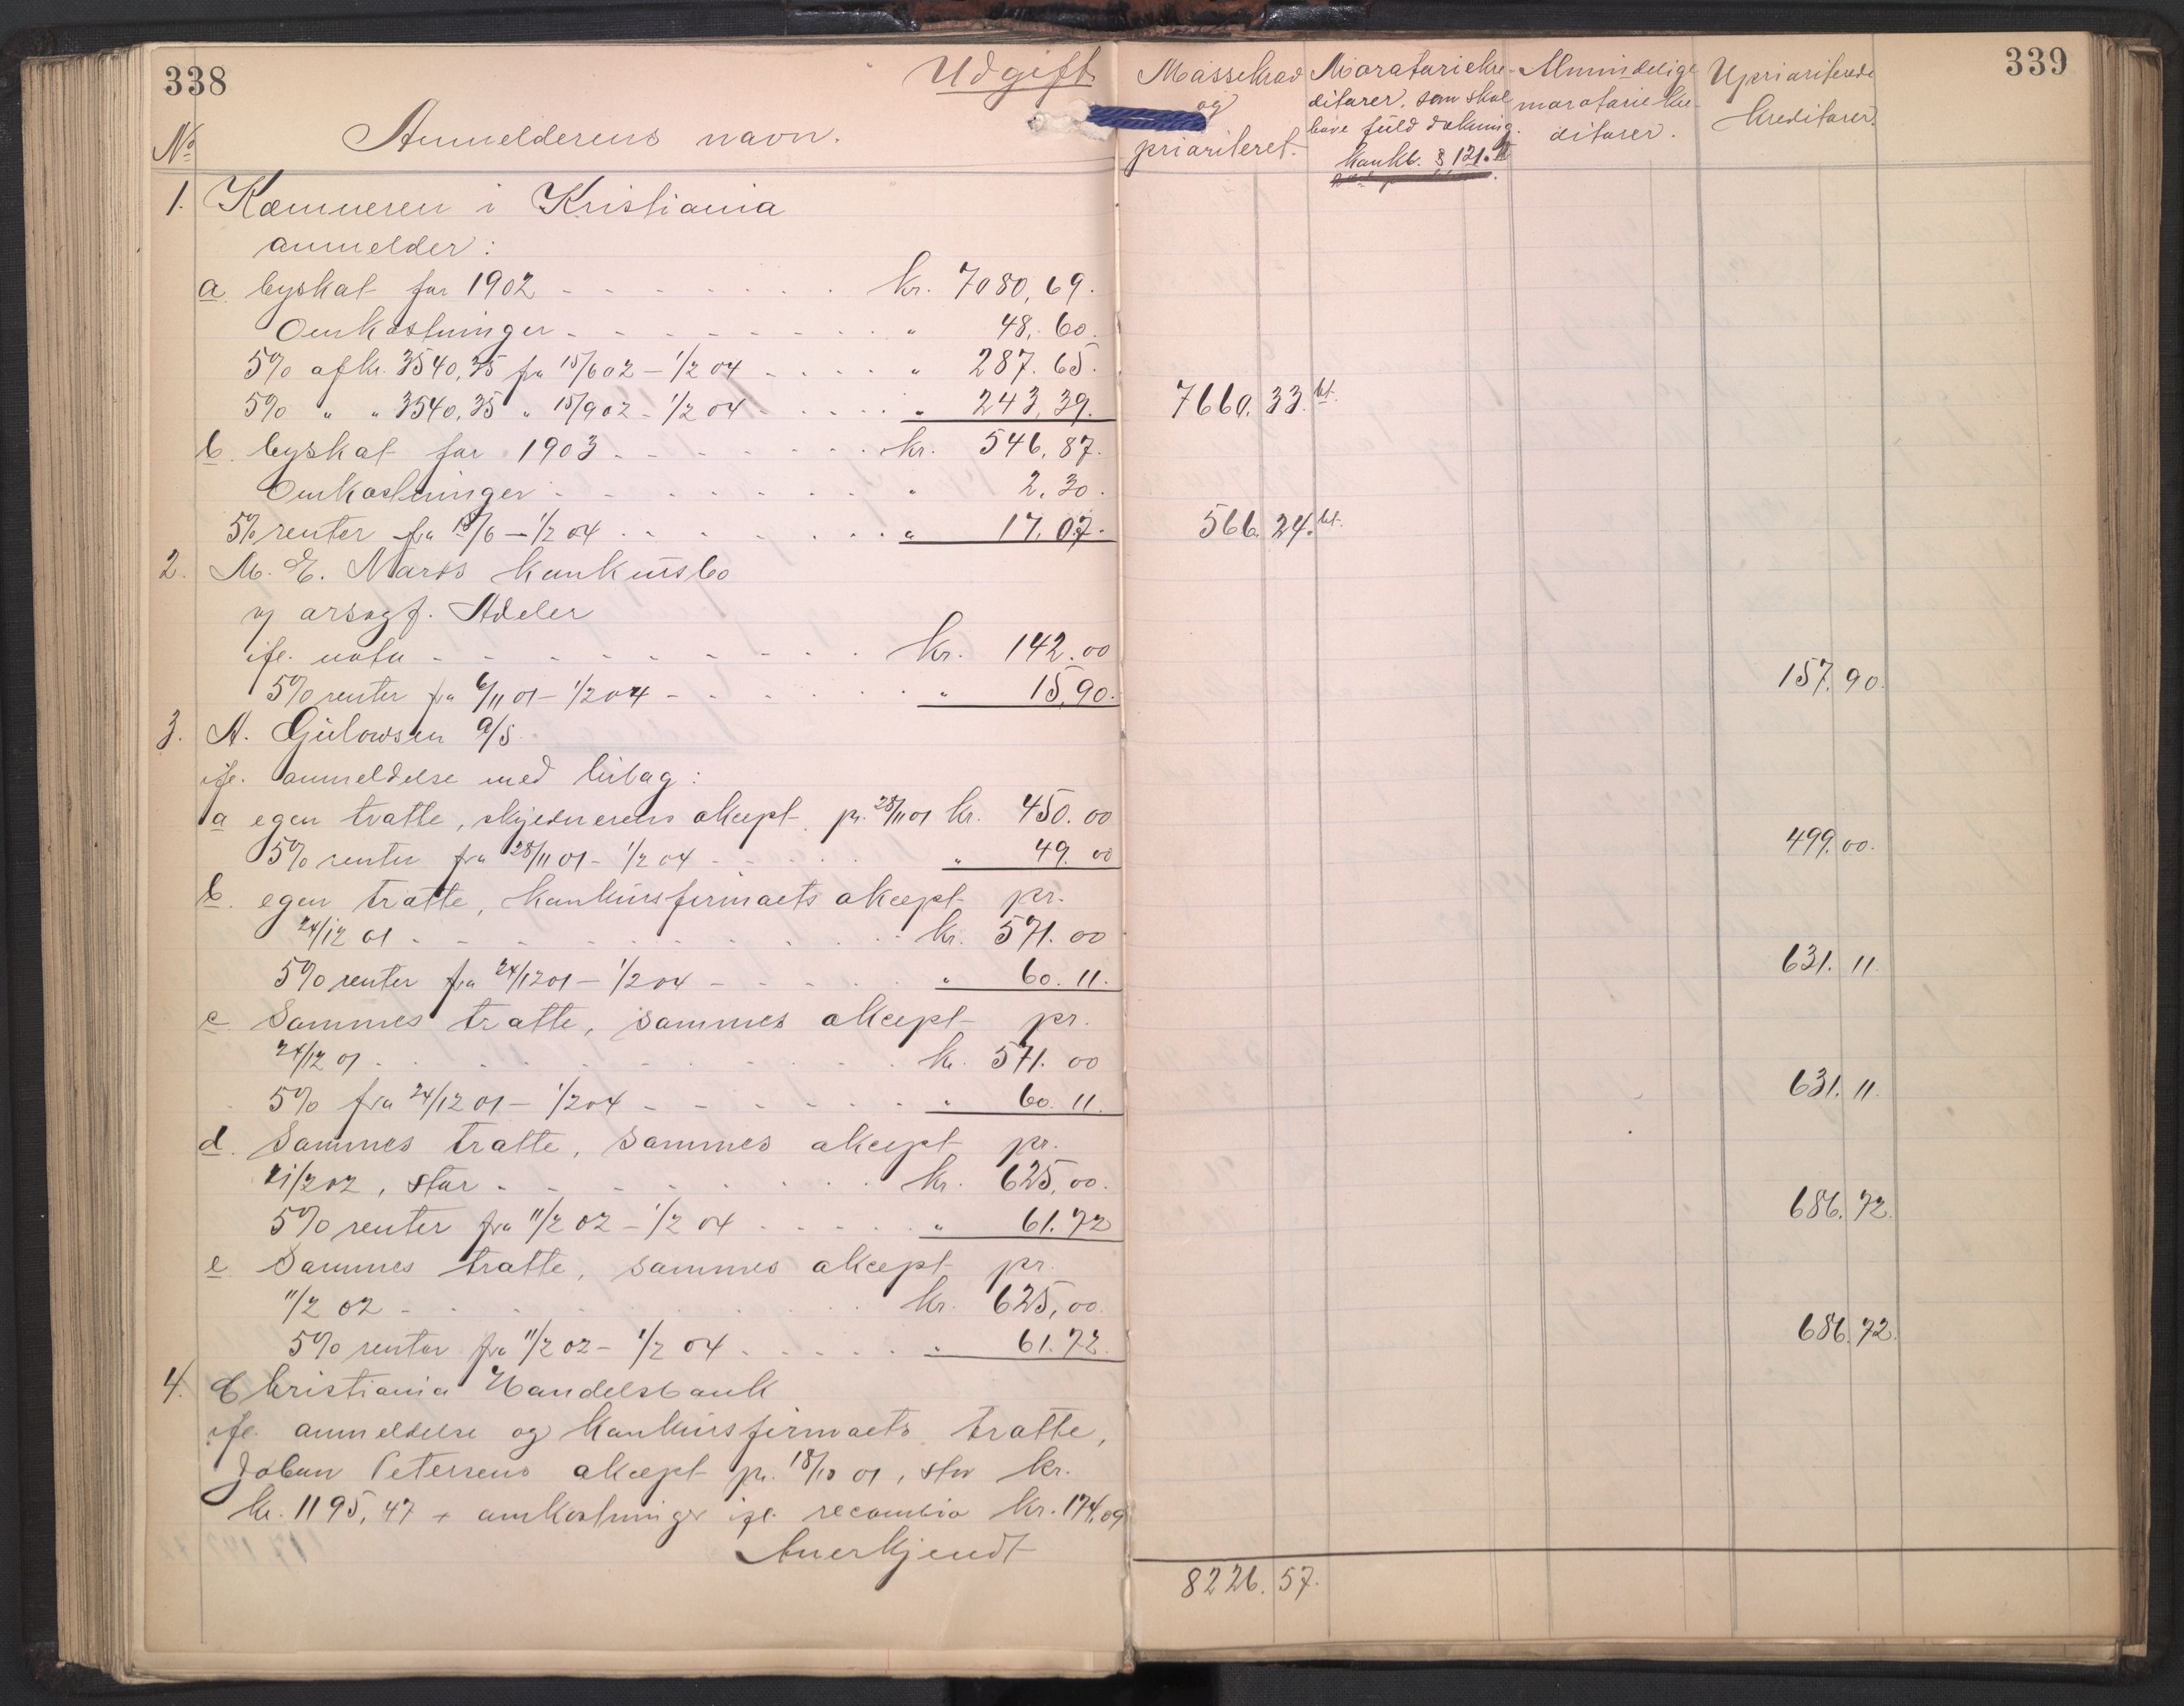 338
Udgift
No Anmelderens navn.
1. Kæmneren i Kristiania
anmelder:
a. byskat for 1902 - - - - - - - kr. 7080,69.
Omkostninger - - - - - - - - " 48,60.
5% af kr. 3540,35 fra 15/6 02 - 1/2 04 - - - - " 287.65.
5% " " 3540,35 " 15/9 02 - 1/2 04 - - - - - " 243,39.
b. byskat for 1903 - - - - - - - kr. 546,87.
Omkostninger - - - - - - - " 2.30.
5% renter fra 15/6 - 1/2 04 - - - - - - - " 17.07.
2. M. E. Naros konkursbo
v/ orsagf. Adeler
ifl. nota - - - - - - - - - kr. 142.00
5% renter fra 6/11 01 - 1/2 04 - - - - - - " 15,90.
3. A. Gulowsen a/s.
ifl. anmeldelse med bilag:
a egen tratte, skjødnerens aksept pr. 28/11 01 kr. 450.00
5% renter fra 28/11 01 - 1/2 04 - - - - - " 49.00
b. egen tratte, konkursfirmaets aksept pr.
24/12 01 - - - - - - - - - kr. 571.00
5% renter fra 24/12 01 - 1/2 04 - - - - - " 60.11.
c Sammes tratte, sammes aksept pr.
24/12 01 - - - - - - - - - kr. 571.00
5% fra 24/12 01 - 1/2 04 - - - - - - - " 60.11.
d. Sammes tratte, sammes aksept pr.
11/2 02, stor - - - - - - - kr. 625,00.
5% renter fra 11/2 02 - 1/2 04 - - - - - " 61.72
e Sammes tratte, sammes aksept pr.
11/2 02 - - - - - - - - - kr. 625,00.
5% renter fra 11/2 02 - 1/2 04 - - - - - " 61.72.
4. Christiania Handelsbank
ifl. anmeldelse og konkursfirmaets tratte,
Johan Petersens aksept pr. 18/10 01, stor kr.
kr. 1195,47 + omkostninger ifl. recambio kr. 174,09
Anerkjendt
339
Massekrav og prioriteret.
Moratoriekreditorer, som skal have fuld dækning. konkl. § 121.
Almindelige moratoriekreditorer.
Uprioriterede kreditorer.
7660.33. bt.
566.24. bt.
157.90.
499.00.
631.11.
631.11.
686.72.
686.72.
8226.57.